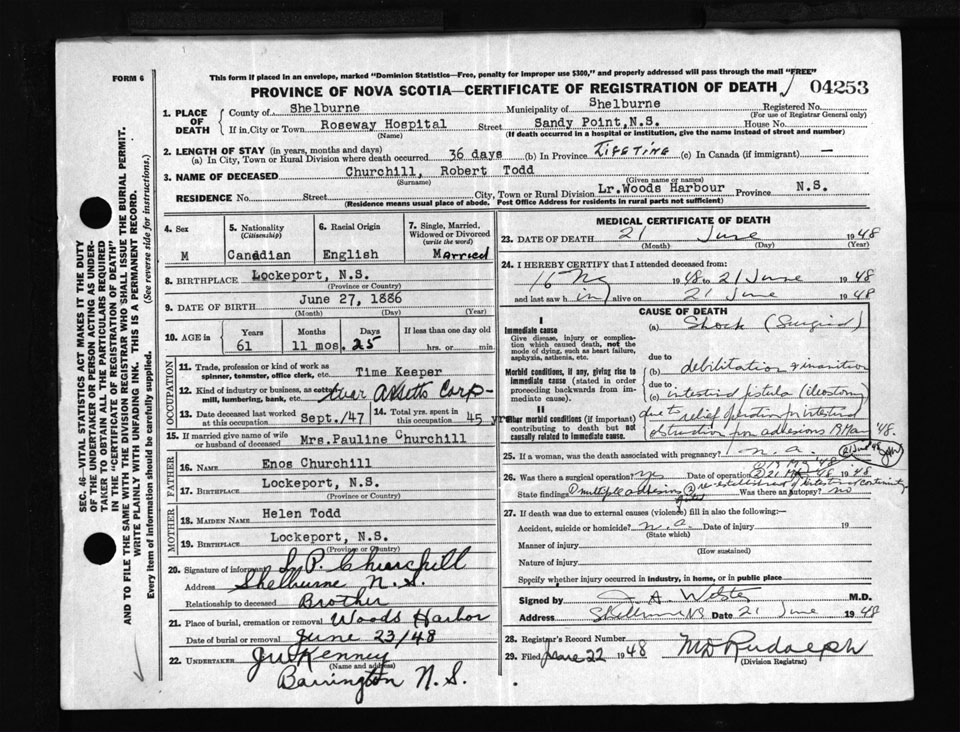 FORM 6
This form if placed in an envelope, marked "Dominion Statistics—Free, penalty for improper use $300," and properly addressed will pass through the mail "FREE"
PROVINCE OF NOVA SCOTIA—CERTIFICATE OF REGISTRATION OF DEATH 04253
1. PLACE OF DEATH County of Shelburne Municipality of Shelburne Registered No.
(For use of Registrar General only)
If in City or Town Roseway Hospital Street Sandy Point, N.S. House No.
(Name) (If death occurred in a hospital or institution, give the name instead of street and number)
2. LENGTH OF STAY (in years, months and days)
(a) In City, Town or Rural Division where death occurred 36 days (b) In Province Lifetime (c) In Canada (if immigrant) —
3. NAME OF DECEASED Churchill, Robert Todd
(Surname) (Given name or names)
RESIDENCE No. Street City, Town or Rural Division Lr. Woods Harbour Province N.S.
(Residence means usual place of abode. Post Office Address for residents in rural parts not sufficient)
SEC. 46—VITAL STATISTICS ACT MAKES IT THE DUTY
OF THE UNDERTAKER OR PERSON ACTING AS UNDER-
TAKER TO OBTAIN ALL THE PARTICULARS REQUIRED
IN THE "CERTIFICATE OF REGISTRATION OF DEATH"
AND TO FILE THE SAME WITH THE DIVISION REGISTRAR WHO SHALL ISSUE THE BURIAL PERMIT.
WRITE PLAINLY WITH UNFADING INK. THIS IS A PERMANENT RECORD.
Every item of information should be carefully supplied. (See reverse side for instructions.)
4. Sex M
5. Nationality (Citizenship) Canadian
6. Racial Origin English
7. Single, Married, Widowed or Divorced (write the word) Married
8. BIRTHPLACE Lockeport, N.S.
(Province or Country)
9. DATE OF BIRTH June 27, 1886
(Month) (Day) (Year)
10. AGE in Years 61 Months 11 mos. Days 25 If less than one day old hrs. or min.
OCCUPATION
11. Trade, profession or kind of work as spinner, teamster, office clerk, etc. Time Keeper
12. Kind of industry or business, as cotton mill, lumbering, bank, etc. War Assetts Corp
13. Date deceased last worked at this occupation Sept./47 14. Total yrs. spent in this occupation 45 yrs
15. If married give name of wife or husband of deceased Mrs. Pauline Churchill
FATHER
16. Name Enos Churchill
17. Birthplace Lockeport, N.S.
(Province or Country)
MOTHER
18. Maiden Name Helen Todd
19. Birthplace Lockeport, N.S.
(Province or Country)
20. Signature of informant L. P. Churchill
Address Shelburne N.S.
Relationship to deceased Brother
21. Place of burial, cremation or removal Woods Harbor
Date of burial or removal June 23/48
22. UNDERTAKER JW Kenney
(Name and address)
Barrington N.S.
MEDICAL CERTIFICATE OF DEATH
23. DATE OF DEATH 21 June 1948
(Month) (Day) (Year)
24. I HEREBY CERTIFY that I attended deceased from:
16 My 1948 to 21 June 1948
and last saw him alive on 21 June 1948
CAUSE OF DEATH
I
Immediate cause
Give disease, injury, or complication which caused death, not the mode of dying, such as heart failure, asphyxia, asthenia, etc.
(a) Shock (Surgical)
due to
Morbid conditions, if any, giving rise to immediate cause (stated in order proceeding backwards from immediate cause).
debilitation & inanition
due to
(c) intestinal fistula (ileostomy)
II
Other morbid conditions (if important) contributing to death but not causally related to immediate cause.
due to relief operation for intestinal
obstruction from adhesions 19 Mar '48.
25. If a woman, was the death associated with pregnancy? n.a.
26. Was there a surgical operation? yes Date of operation 1948
State findings ① multiple adhesions ② re-established intestinal continuity Was there an autopsy? no
27. If death was due to external causes (violence) fill in also the following:—
Accident, suicide or homicide? n.a. Date of injury 19
(State which)
Manner of injury
(How sustained)
Nature of injury
Specify whether injury occurred in industry, in home, or in public place
Signed by M.D.
Address Shelburne NS Date 21 June 1948
28. Registrar's Record Number
29. Filed June 22 1948 M D Rudolph
(Division Registrar)